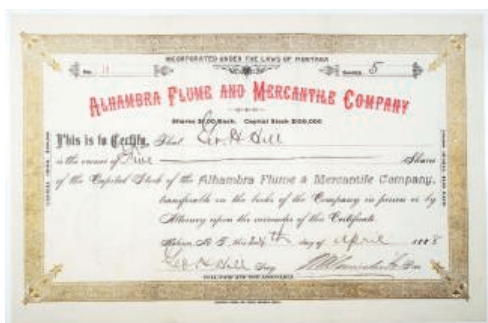 INCORPORATED UNDER THE LAWS OF MONTANA
No. 11 Shares 5
ALHAMBRA FLUME AND MERCANTILE COMPANY
Shares $1.00 Each. Capital Stock $100,000
This is to Certify, That Geo. H. Hill
is the owner of Five Shares
of the Capital Stock of the Alhambra Flume & Mercantile Company,
transferable on the books of the Company in person or by
Attorney upon the surrender of this Certificate
day of April 1888
Geo H Hill Secy